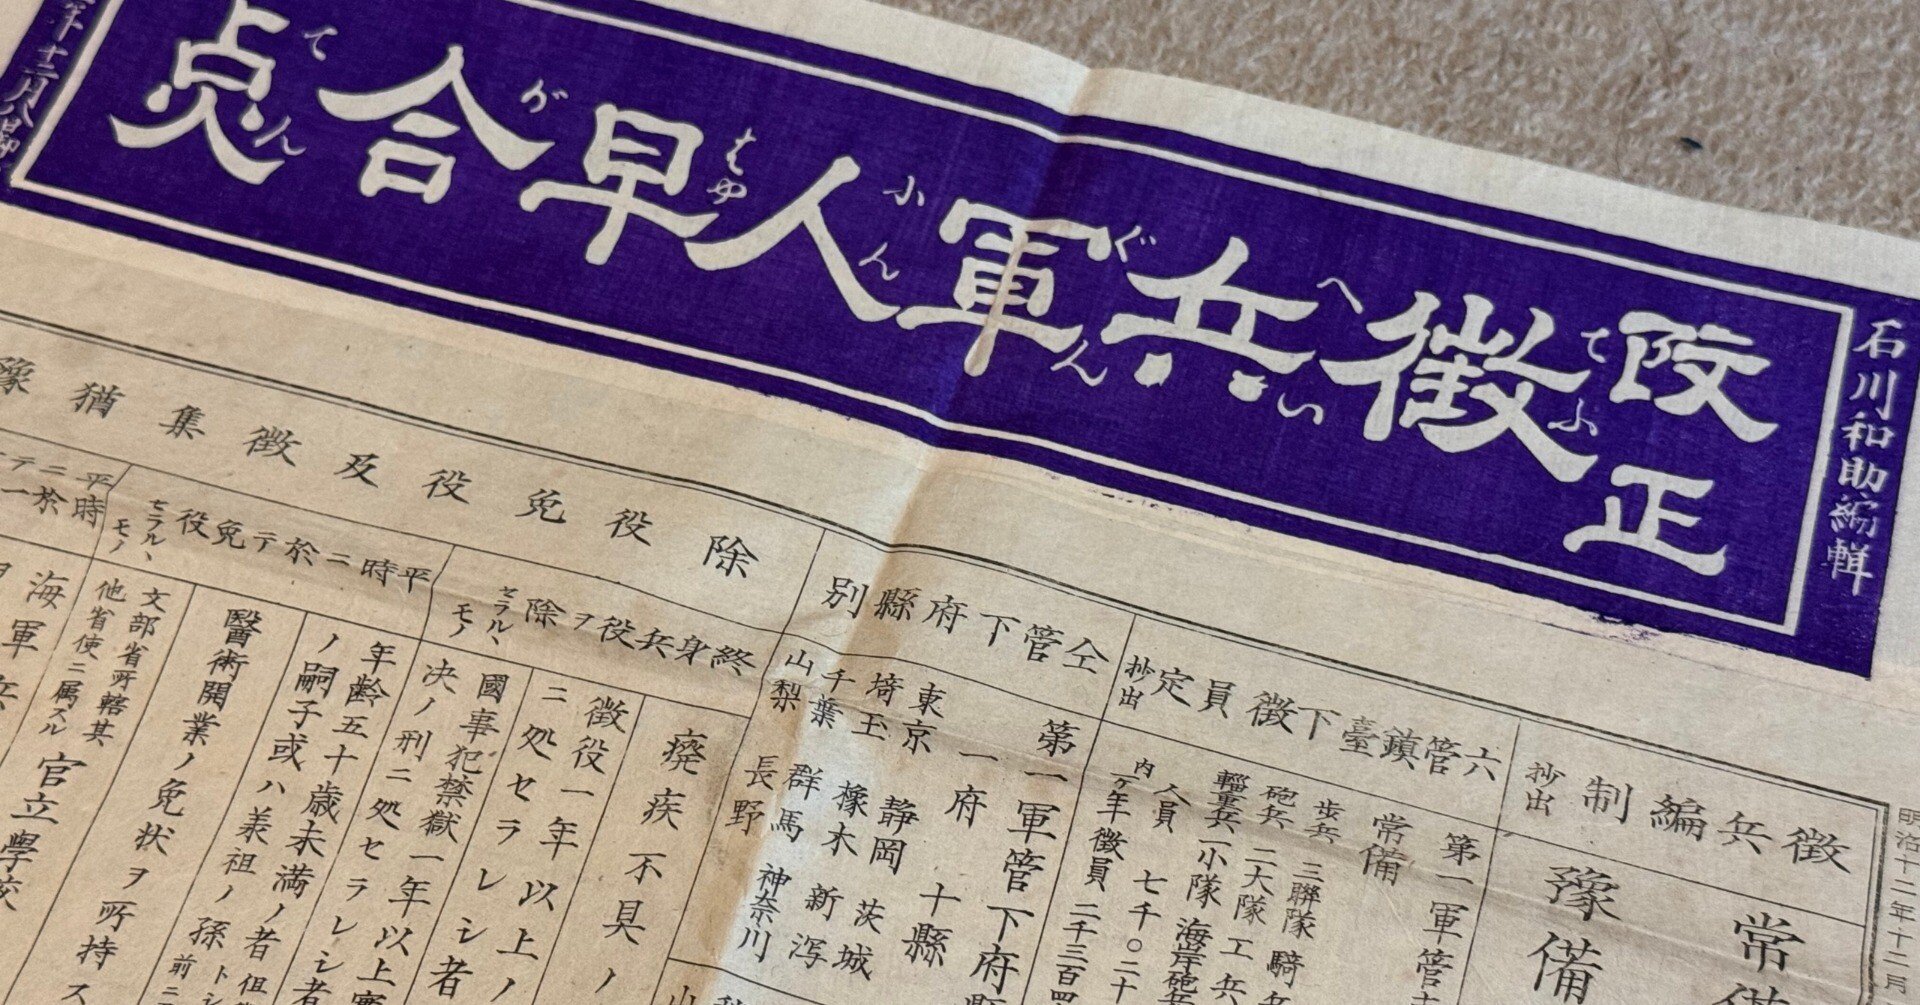 石川和助編輯
改正
徴兵軍人早合点
てふへいぐんふんはやがてん
年十二月八日御
明治十二年十二月
徴兵編制
抄出
常備
豫備
六管鎮臺下徴員定
抄出
第一軍管
常備
歩兵 三聯隊 騎兵
砲兵 二大隊 工兵
輜重兵一小隊 海岸砲兵
人員 七千〇二十
内一ケ年徴員 二千三百四
仝管下府縣別
第一軍管下府縣
一府 十縣
東京 静岡 茨城
埼玉 橡木 新潟
千葉 群馬 神奈川
山梨 長野
除役免役及徴集猶豫
終身兵役ヲ除
セラルヽモノ
廃疾不具ノ
徴役一年以上ノ
ニ処セラレシ者
國事犯禁獄一年以上
決ノ刑ニ処セラレシ者
平時ニ於テ免役
セラルヽモノ
年齢五十歳未満ノ者
ノ嗣子或ハ養祖ノ孫
醫術開業ノ免状ヲ所持ス
文部省所轄其
他省使ニ属スル
官立學校
海軍兵
平時
ニ於
テ一